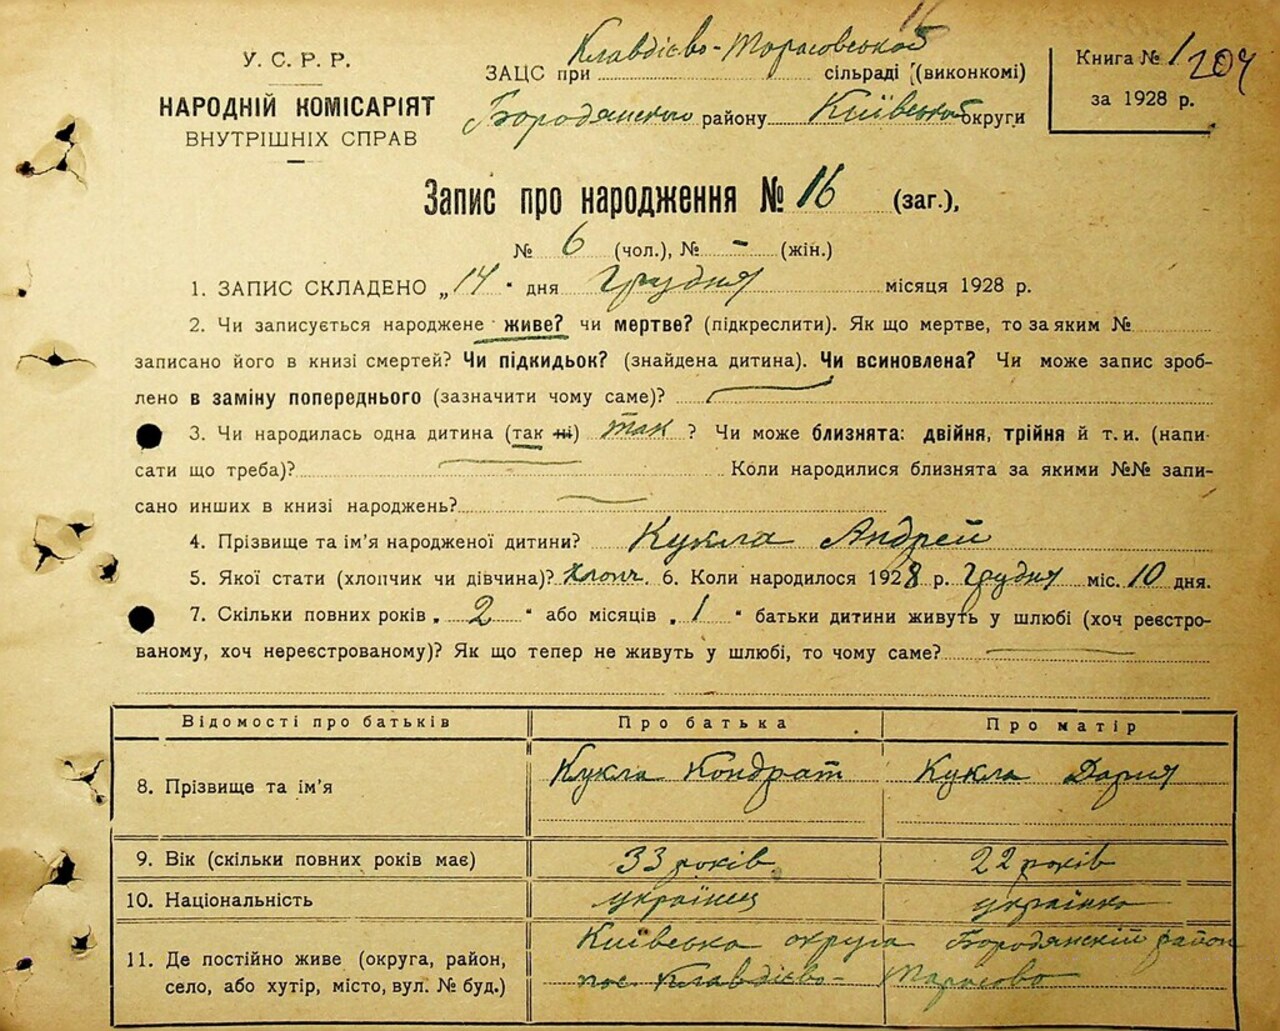 16
У. С. Р. Р.
НАРОДНІЙ КОМІСАРІЯТ
ВНУТРІШНІХ СПРАВ
ЗАЦС при Клавдієво-Тарасовській сільраді (виконкомі)
Бородянского району Київської округи
Книга № 1
204
за 1928 р.
Запис про народження № 16 (заг.),
№ 6 (чол.), № - (жін.)
1. ЗАПИС СКЛАДЕНО „14" дня Грудня місяця 1928 р.
2. Чи записується народжене живе? чи мертве? (підкреслити). Як що мертве, то за яким №
записано його в книзі смертей? Чи підкидьок? (знайдена дитина). Чи всиновлена? Чи може запис зроб-
лено в заміну попереднього (зазначити чому саме)?
3. Чи народилась одна дитина (так ні) так ? Чи може близнята: двійня, трійня й т. и. (напи-
сати що треба)? Коли народилися близнята за якими №№ запи-
сано инших в книзі народжень?
4. Прізвище та ім'я народженої дитини? Кукла Андрей
5. Якої стати (хлопчик чи дівчина)? хлопч. 6. Коли народилося 1928 р. Грудня міс. 10 дня.
7. Скільки повних років „ 2 " або місяців „ 1 " батьки дитини живуть у шлюбі (хоч реєстро-
ваному, хоч нереєстрованому)? Як що тепер не живуть у шлюбі, то чому саме?
Відомості про батьків Про батька Про матір
8. Прізвище та ім'я Кукла Кондрат Кукла Дария
9. Вік (скільки повних років має) 33 років 22 років
10. Національність українец українка
11. Де постійно живе (округа, район,
село, або хутір, місто, вул. № буд.)
Київська округа Бородянскій район
пос. Клавдієво-Тарасово